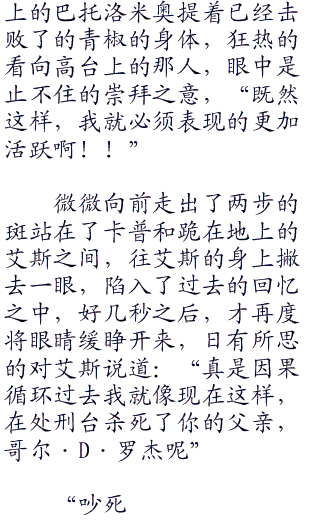 上的巴托洛米奥提着已经击
败了的青椒的身体，狂热的
看向高台上的那人，眼中是
止不住的崇拜之意，“既然
这样，我就必须表现的更加
活跃啊！！”
微微向前走出了两步的
斑站在了卡普和跪在地上的
艾斯之间，往艾斯的身上撇
去一眼，陷入了过去的回忆
之中，好几秒之后，才再度
将眼睛缓睁开来，日有所思
的对艾斯说道：“真是因果
循环过去我就像现在这样，
在处刑台杀死了你的父亲，
哥尔·D·罗杰呢”
“吵死